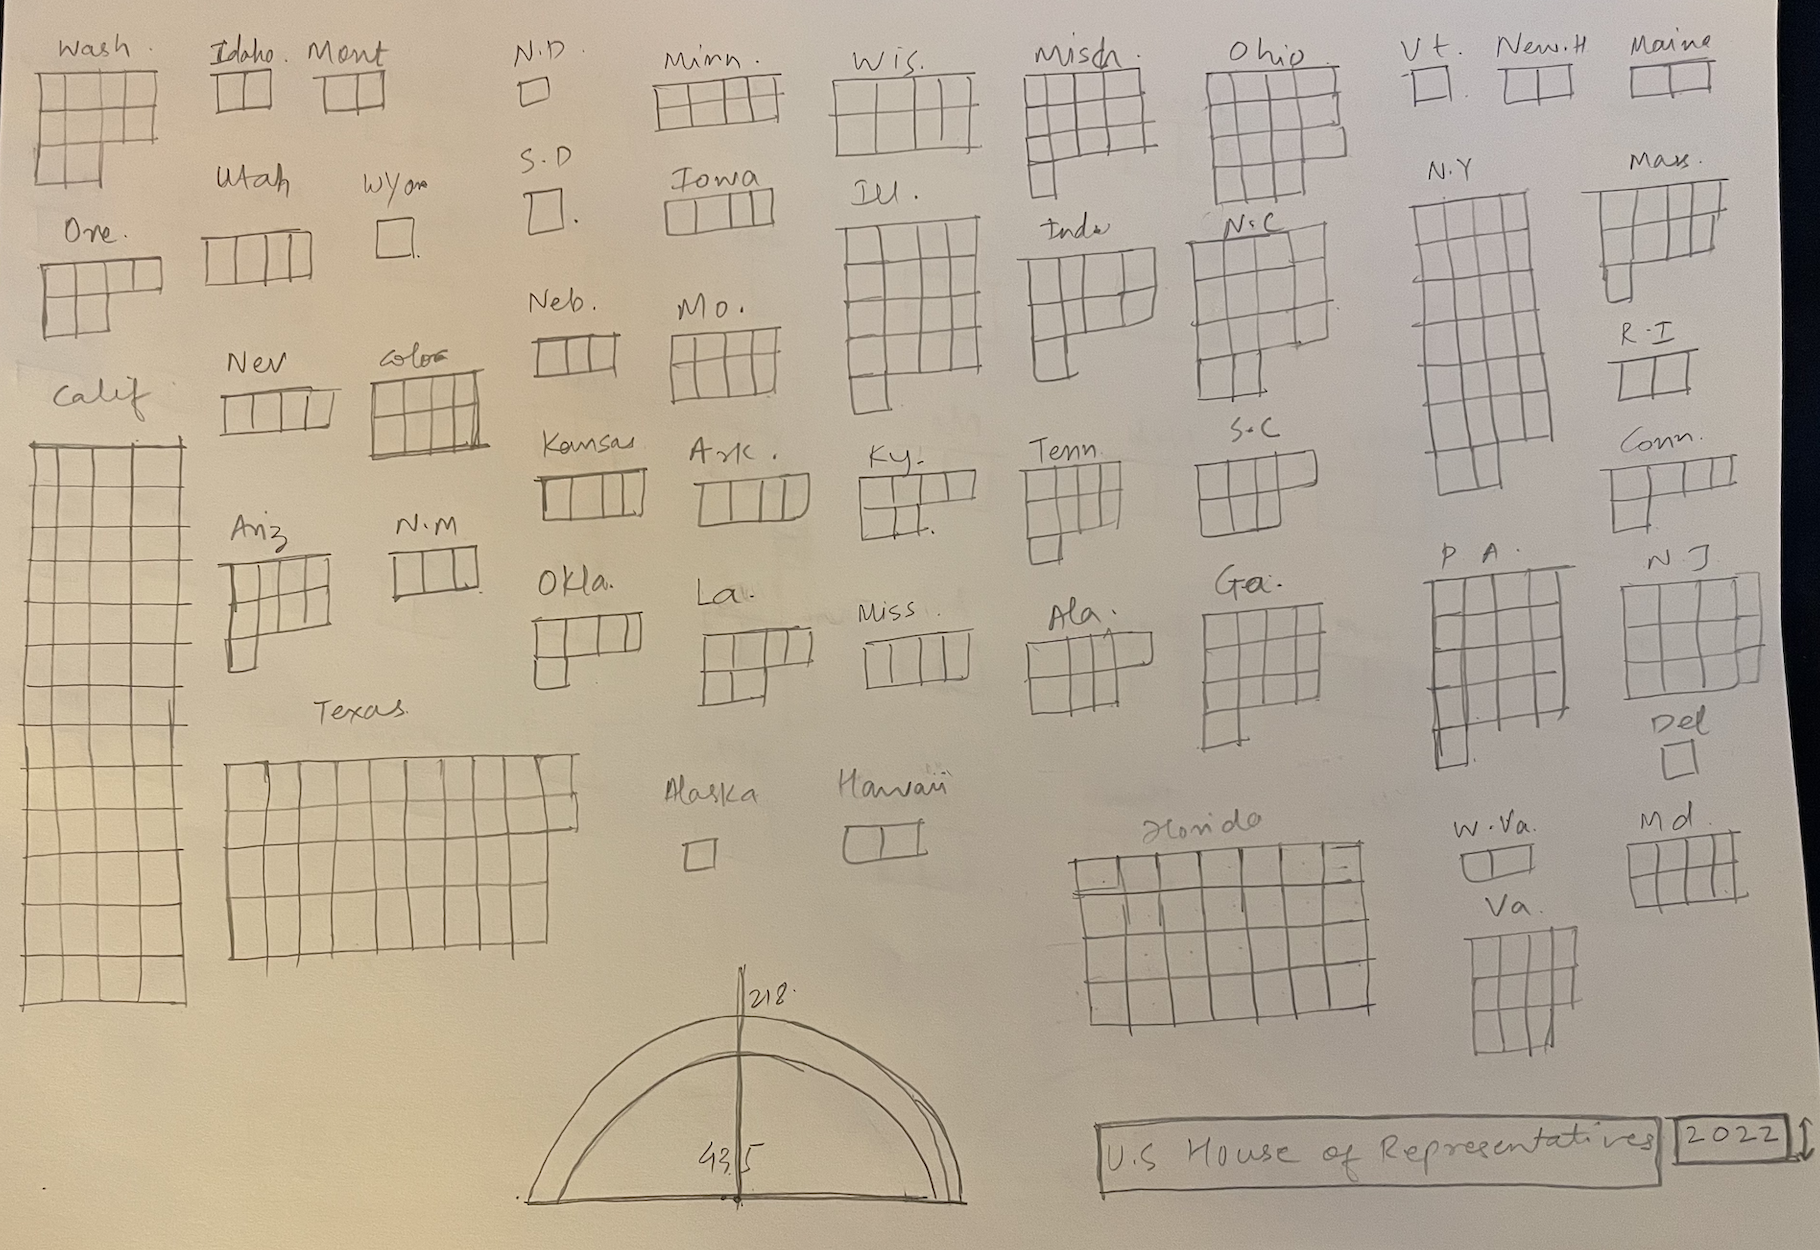 Wash.
Idaho.
Mont
N.D.
Minn.
Wis.
Misch.
Ohio
Vt.
New.H
Maine
Utah
Wyom
S.D
Iowa
Ill.
Indi
N.C
N.Y
Mass.
Ore.
Neb.
Mo.
R.I
Nev
Colora
Calif
Kansas
Ark.
Ky.
Tenn.
S.C
Conn.
Ariz
N.M
Okla.
La.
Miss.
Ala.
Ga.
P A.
N J.
Texas
Alaska
Hawaii
Florida
W.Va.
Del
Md.
Va.
218.
435
U.S House of Representatives
2022